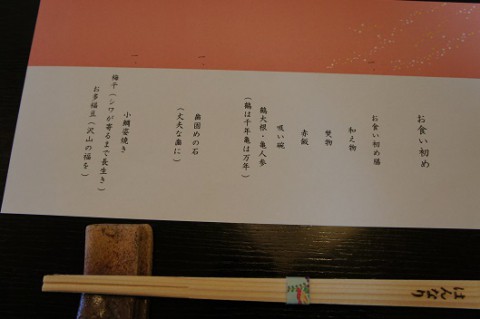 お食い初め
一、
お食い初め膳
和え物
焚物
赤飯
吸い碗
鶴大根・亀人参
(鶴は千年亀は万年)
一、
歯固めの石
(丈夫な歯に)
一、
小鯛姿焼き
梅干(シワが寄るまで長生き)
お多福豆(沢山の福を)
はんなり